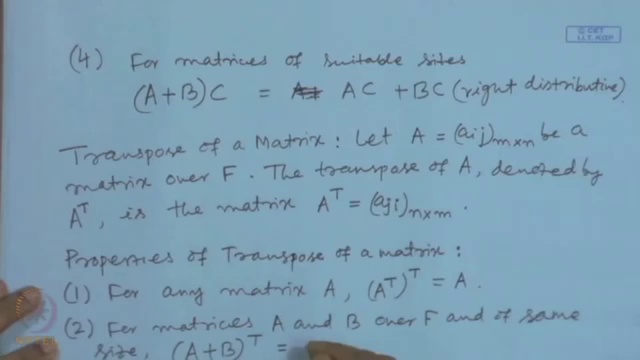 © CET
I.I.T. KGP
(4) For matrices of suitable sizes
(A+B)C = AC + BC (right distributive)
Transpose of a Matrix : Let A = (aij)m×n be a
matrix over F. The transpose of A, denoted by
A^T, is the matrix A^T = (aji)n×m.
Properties of Transpose of a matrix :
(1) For any matrix A, (A^T)^T = A.
(2) For matrices A and B over F and of same
size, (A+B)^T =